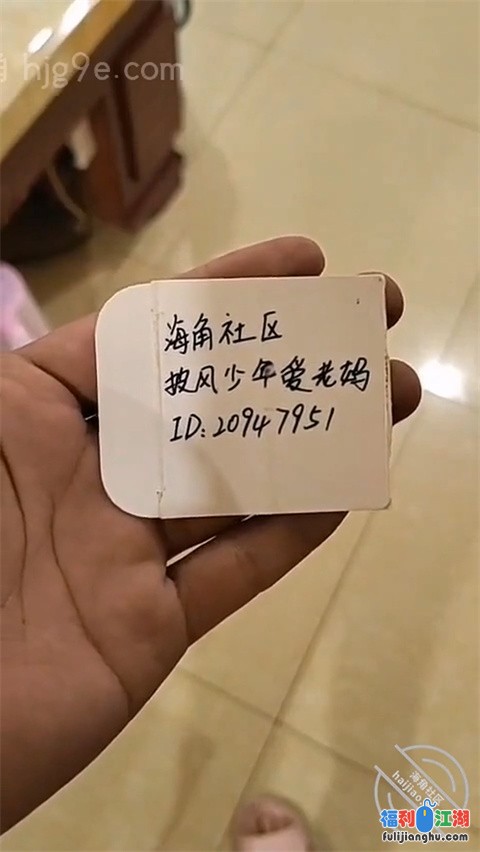 hjg9e.com
海角社区
披风少年爱老妈
ID:20947951
海角社区
haijiao
福利江湖
fulijianghu.com